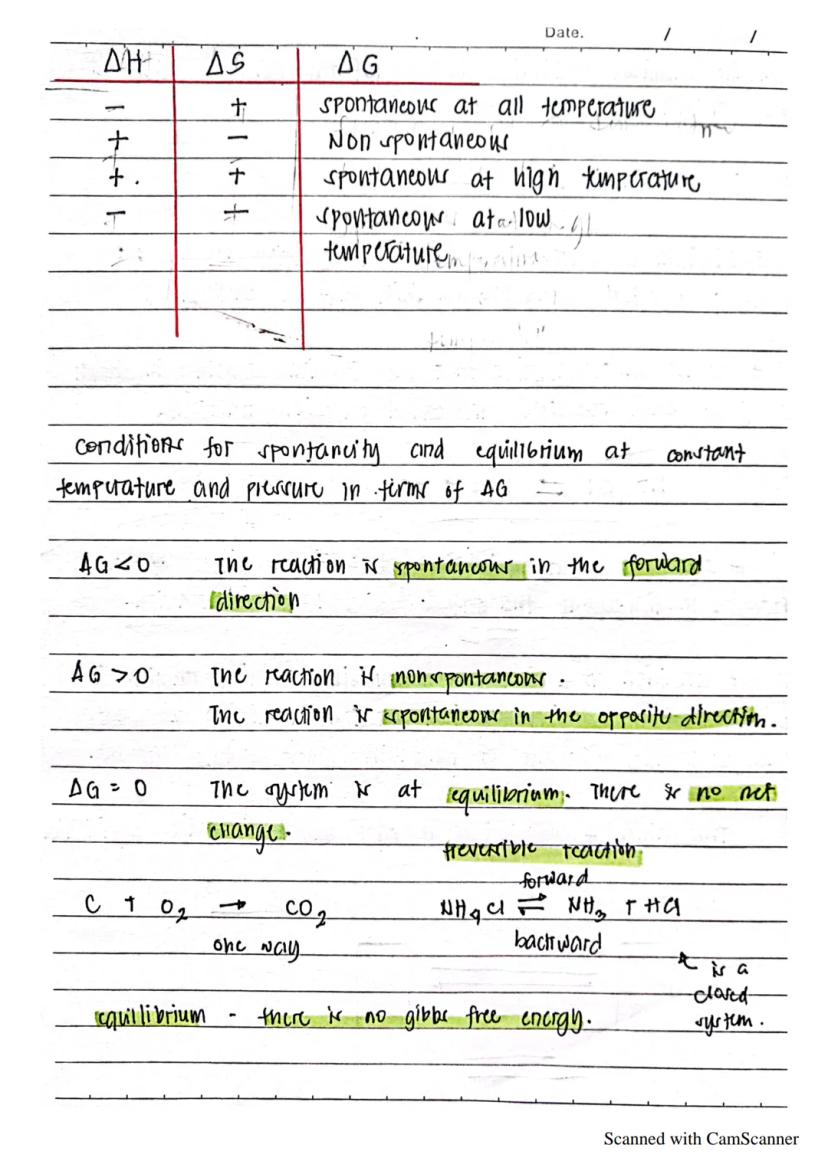 Date. / /
ΔH ΔS ΔG
− + spontaneous at all temperature
+ − Non spontaneous
+. + spontaneous at high temperature
− + spontaneous at low
temperature
conditions for spontaneity and equilibrium at constant
temperature and pressure in terms of ΔG =
ΔG < 0 The reaction is spontaneous in the forward
direction
ΔG > 0 The reaction is nonspontaneous.
The reaction is spontaneous in the opposite direction.
ΔG = 0 The system is at equilibrium. There is no net
change.
reversible reaction
forward
C + O2 → CO2 NH4Cl ⇌ NH3 + HCl
one way backward
is a
closed
equilibrium - there is no gibbs free energy.
system.
Scanned with CamScanner